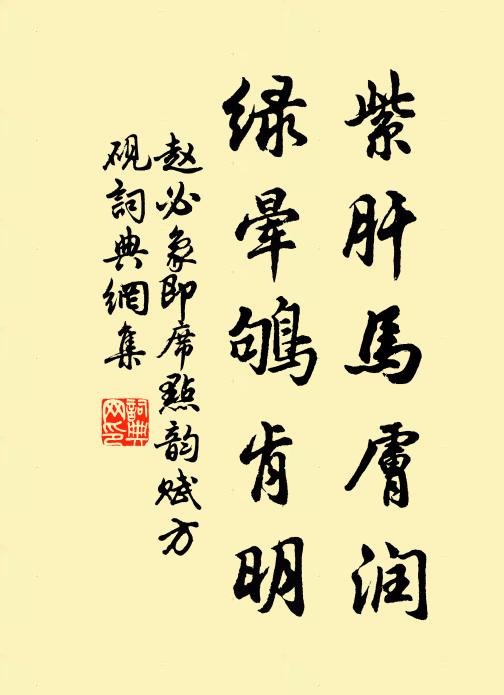 紫肝馬膚润
绿暈鴝肯明
赵必象即席點韵赋方
砚詞典網集
詞典
网印